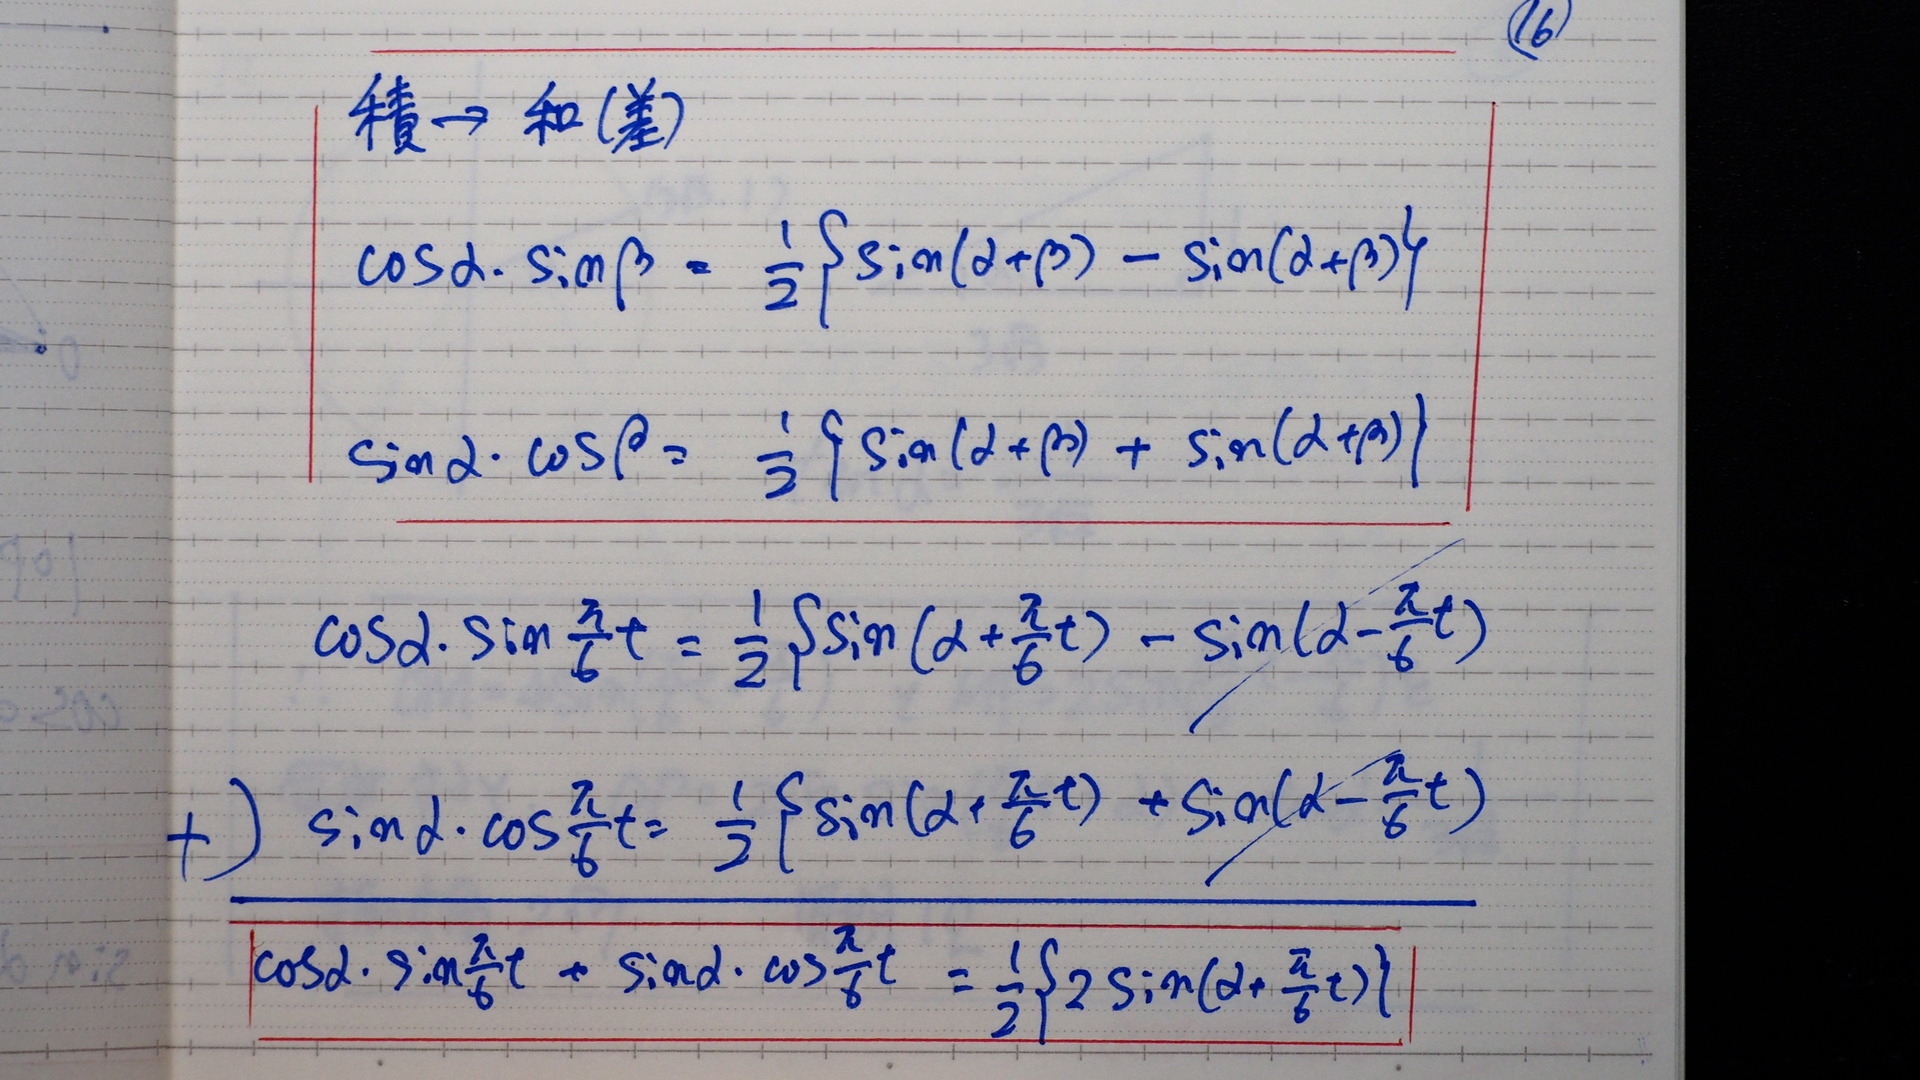 (16)
積→ 和(差)
cosα・sinβ = 1/2{sin(α+β) - sin(α+β)}
sinα・cosβ = 1/2{sin(α+β) + sin(α+β)}
cosα・sin π/6 t = 1/2{sin(α+π/6 t) - sin(α-π/6 t)
+) sinα・cos π/6 t = 1/2{sin(α+π/6 t) + sin(α-π/6 t)
cosα・sin π/6 t + sinα・cos π/6 t = 1/2{2 sin(α+π/6 t)}